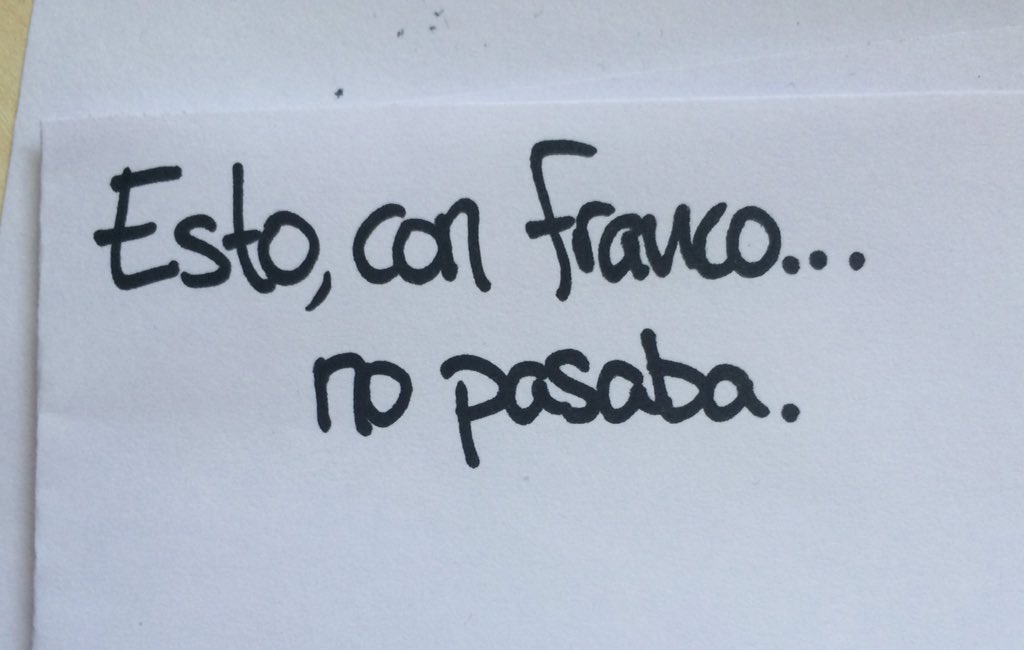 Esto, con franco...
no pasaba.